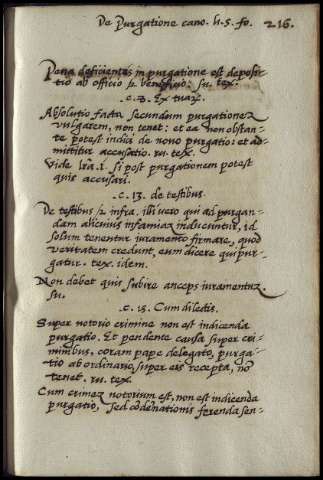 De Purgatione cano. li. 5. fo. 216.
Pena deficientis in purgatione est deposi-
tio ab officio et beneficio: su. tex.
.c. 8. Ex tuarum.
Absolutio facta secundum purgationem
vulgarem, non tenet: et ea non obstan-
te potest indici de nouo purgatio: et ad-
mittitur accusatio. su. tex.
Vide ... si post purgationem potest
quis accusari.
.c. 13. de testibus.
De testibus et infra. illi vero qui ad purgan-
dam alicuius infamiam inducuntur, id
solum tenentur iuramento firmare, quod
veritatem credunt, eum dicere qui pur-
gatur. tex. idem.
Non debet quis subire anceps iuramentum.
su.
.c. 15. Cum dilectis.
Super notorio crimine non est indicenda
purgatio. Et pendente causa super cri-
minibus, coram pape delegato, purga-
tio ab ordinario, super eis recepta, nō
tenet. su. tex.
Cum crimen notorium est, non est indicenda
purgatio, sed cōdēnationis ferenda sen-